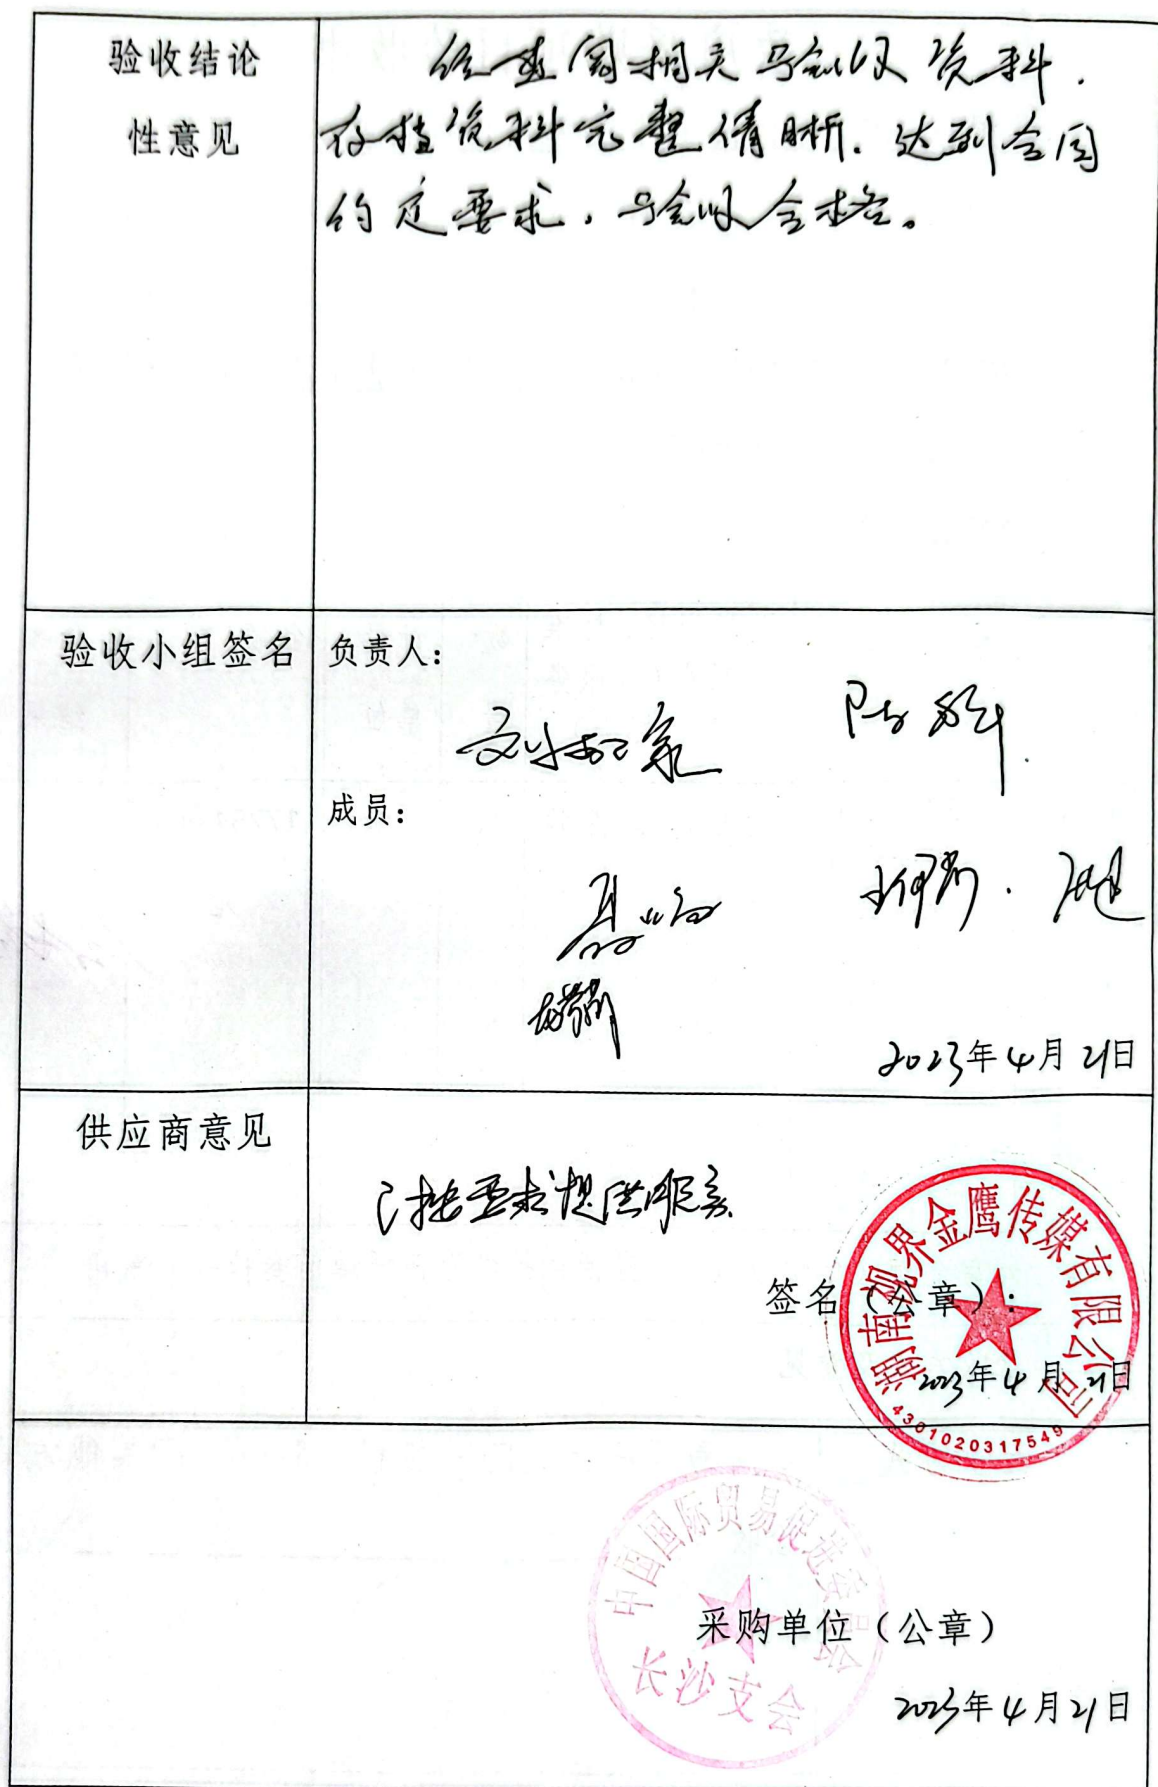 验收结论
性意见
经查阅相关验收资料.
存档资料完整清晰.达到合同
约定要求,验收合格。
验收小组签名
负责人:
成员:
2023年4月21日
供应商意见
已按要求提供服务
签名(公章):
湖南视界金鹰传媒有限公司
2023年4月21日
4301020317549
中国国际贸易促进委员会
长沙支会
采购单位(公章)
2023年4月21日